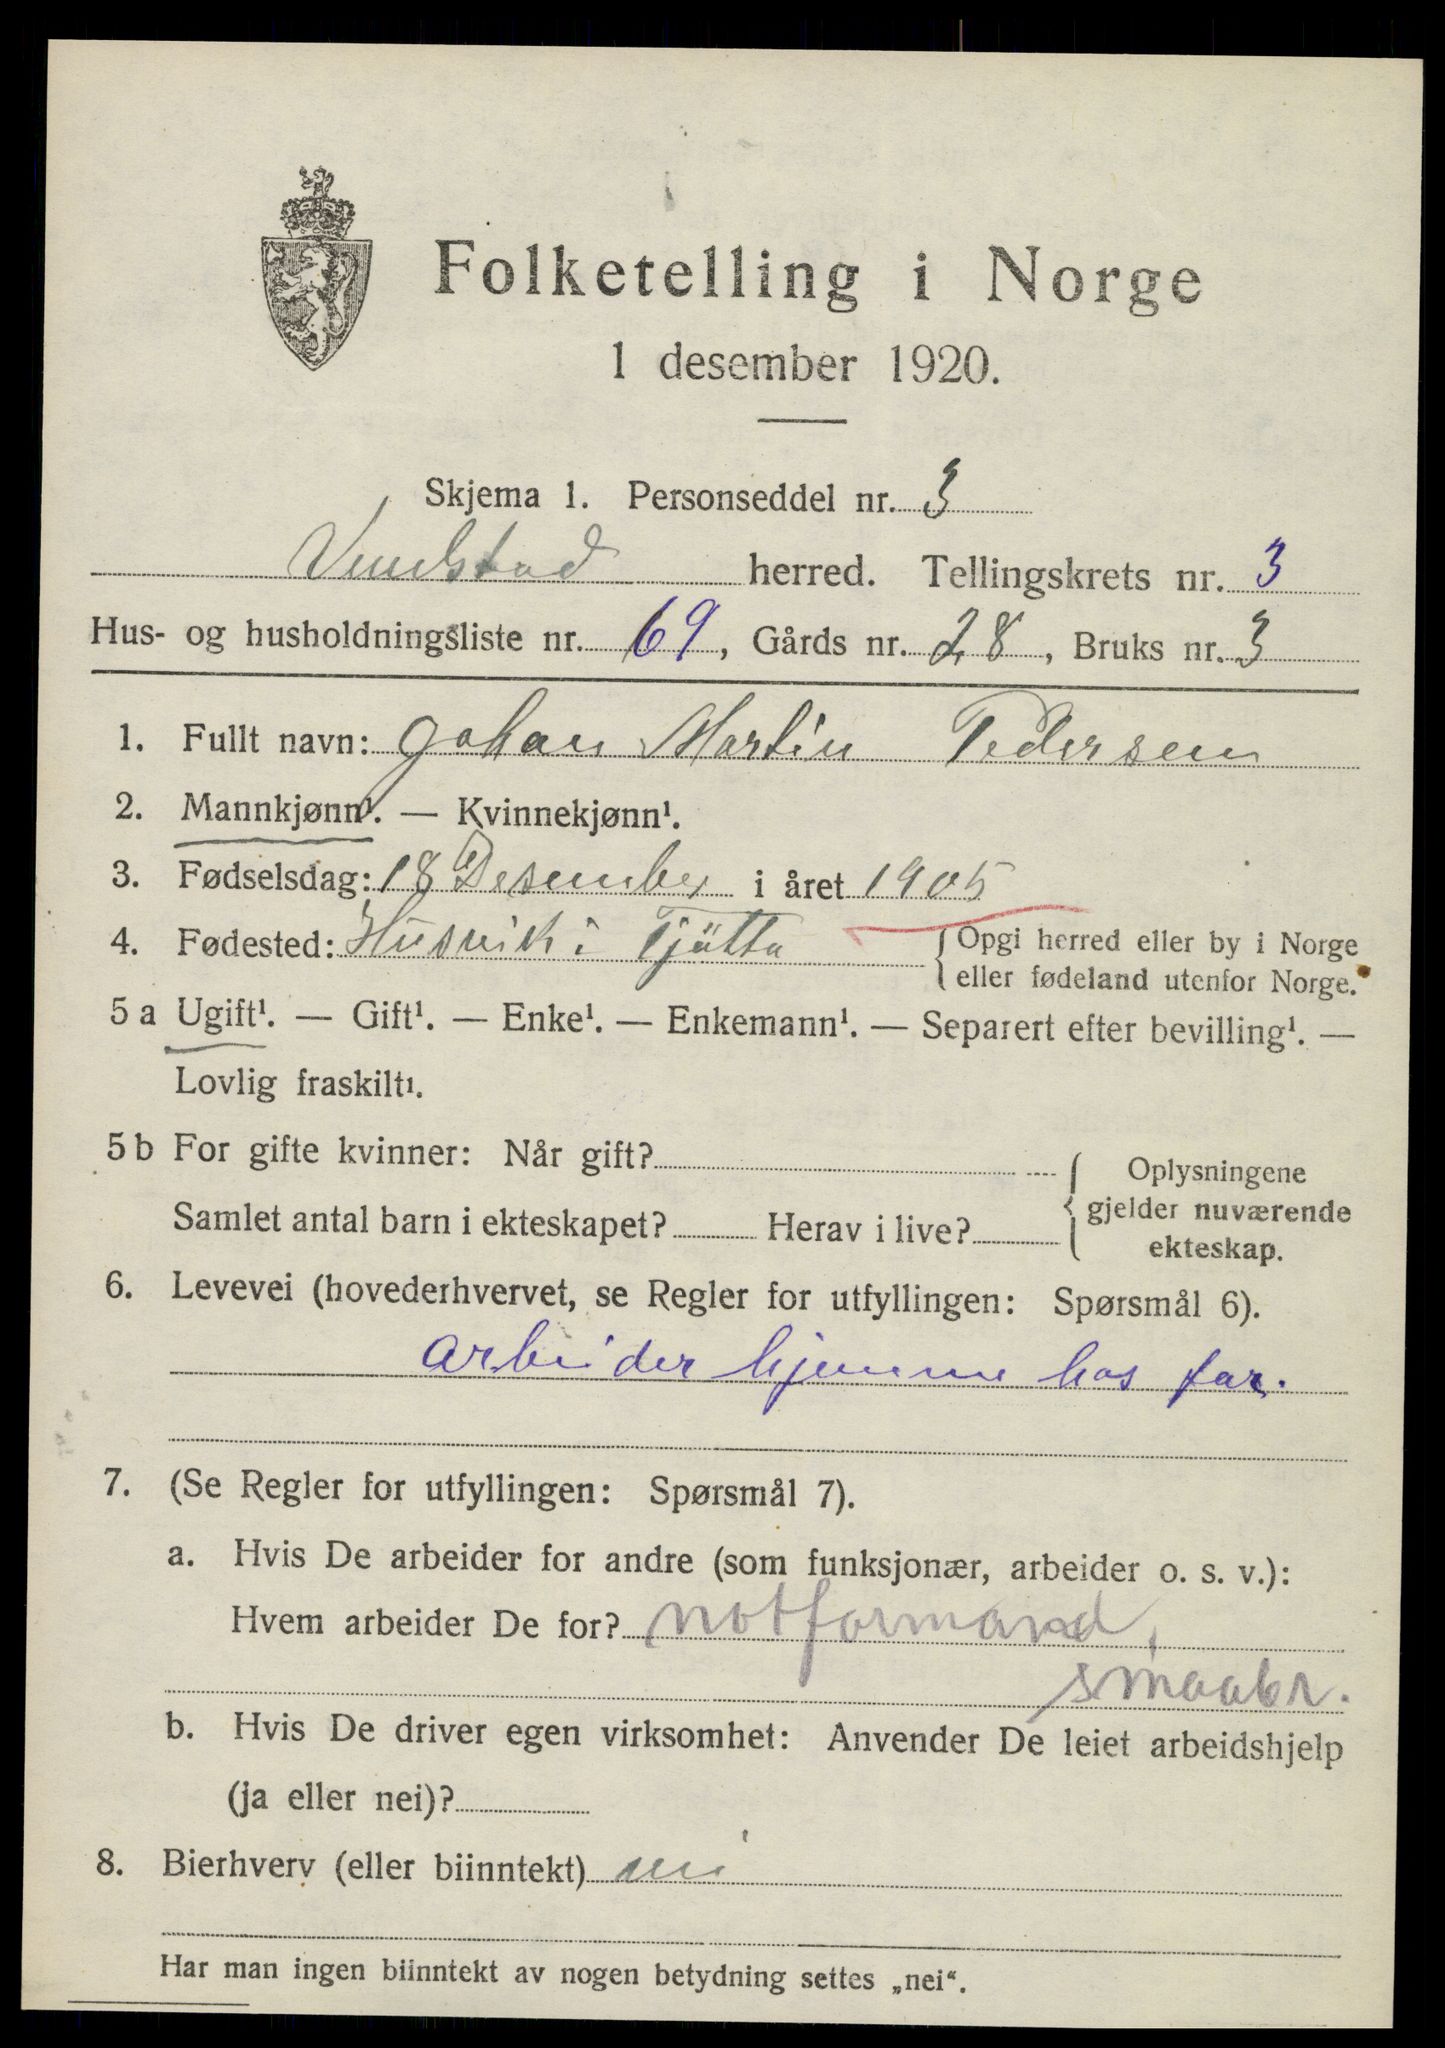 Folketelling i Norge
1 desember 1920.
Skjema 1. Personseddel nr. 3
herred. Tellingskrets nr. 3
Hus- og husholdningsliste nr. 69, Gårds nr. 28, Bruks nr. 3
1. Fullt navn: Johan Martin Pedersen
2. Mannkjønn¹. — Kvinnekjønn¹.
3. Fødselsdag: 18 Desember i året 1905
4. Fødested: Husvik i Tjötta { Opgi herred eller by i Norge
eller fødeland utenfor Norge.
5 a Ugift¹. — Gift¹. — Enke¹. — Enkemann¹. — Separert efter bevilling¹. —
Lovlig fraskilt¹.
5 b For gifte kvinner: Når gift? { Oplysningene
Samlet antal barn i ekteskapet? Herav i live? gjelder nuværende
ekteskap.
6. Levevei (hovederhvervet, se Regler for utfyllingen: Spørsmål 6).
arbeider hjemme hos far.
7. (Se Regler for utfyllingen: Spørsmål 7).
a. Hvis De arbeider for andre (som funksjonær, arbeider o. s. v.):
Hvem arbeider De for? notformand,
smaabr.
b. Hvis De driver egen virksomhet: Anvender De leiet arbeidshjelp
(ja eller nei)?
8. Bierhverv (eller biinntekt) nei
Har man ingen biinntekt av nogen betydning settes „nei“.